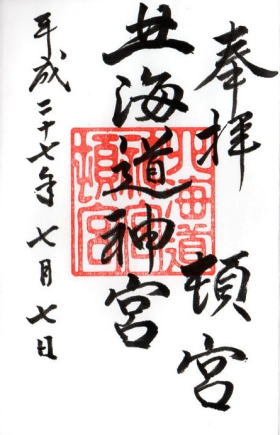 奉拝 頓宮
北海道神宮
平成二十七年七月七日
北海道
神宮
頓宮